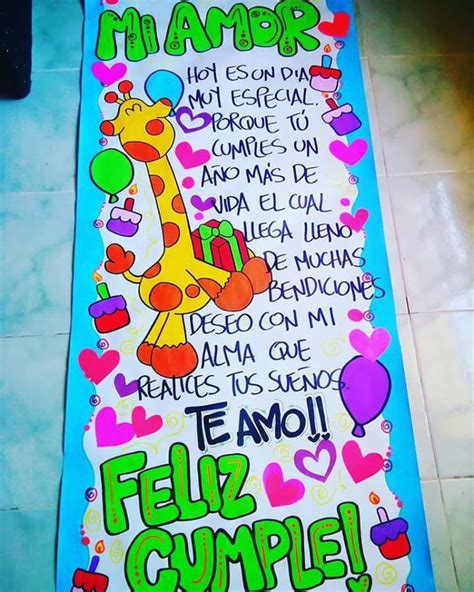 MI AMOR
HOY ES UN DIA
MUY ESPECIAL.
PORQUE TÚ
CUMPLES UN
AÑO MÁS DE
VIDA EL CUAL
LLEGA LLENO
DE MUCHAS
BENDICIONES
DESEO CON MI
ALMA QUE
REALICES TUS SUEÑOS.
TE AMO!!
FELIZ
CUMPLE!